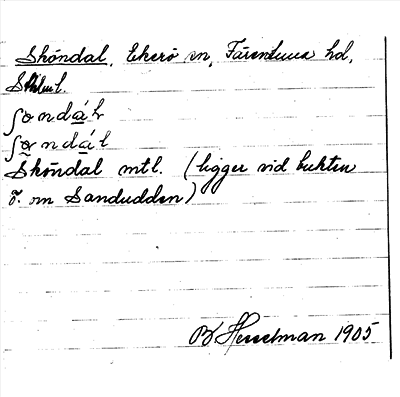 Sköndal, Ekerö sn, Färentuna hd,
Sthlm l.
ʃøndál
ʃøndál
Sköndal mtl. (ligger vid bukten
ö. om Sandudden)
B Hesselman 1905